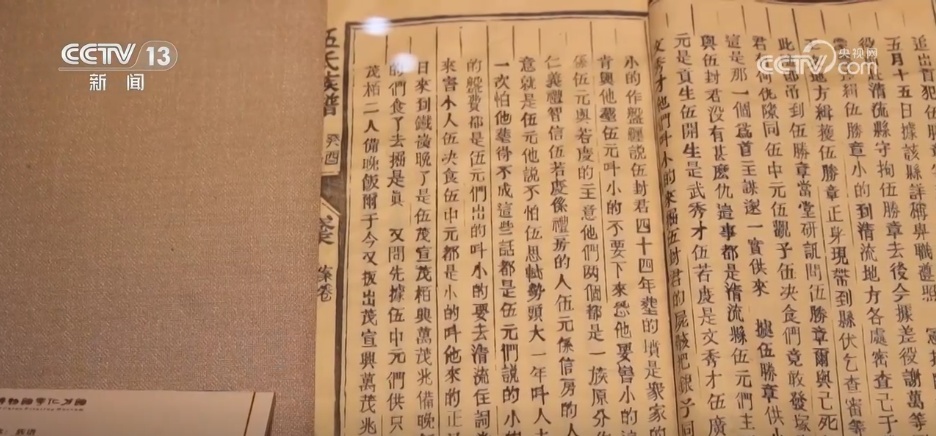 CCTV 13
新闻
央视网
CCTV.com
近出首犯伍
五月十五日據該縣詳稱卑職遵照
清流縣守拘伍勝章去後今據差役謝萬等
緝伍勝章小的到清流地方各處密查已于
地方緝獲伍勝章正身現帶到縣伏乞查審等
此弔到伍勝章當堂研訊問伍勝章爾與已死
君何仇隙同伍中元伍觀予伍决食們竟敢發塚
這是那一個為首主謀逐一實供來 據伍勝章供
與伍封君没有甚麽仇這事都是清流縣伍元們主
元是貢生伍開生是武秀才伍若虔是文秀才伍
文秀才他們叫小的來掘伍封君的屍骸把銀子同
小的作盤纏說伍封君四十四年塟的墳是衆家的
肯與他塟伍元叫小的不要下來恐他要害小的
係伍元與若虔的主意他們兩個都是一族原分作
仁義禮智信伍若虔係禮房的人伍元係信房的人
意就是伍元他說不怕伍思帖勢頭大一年叫人
一次怕他塟得不成這些話都是伍元們說的小
的盤費都是伍元們出的叫小的要去清流在祠
來害小人伍决食伍中元都是小的叫他來的正
日來到鐵嶺晚了是伍茂宣茂栢興萬茂兆備晚
的們食了去掘是真 又問先據伍中元們供只
茂栢二人備晚飯爾于今又扳出茂宣興萬茂兆
伍氏族譜 癸酉
卷
族谱